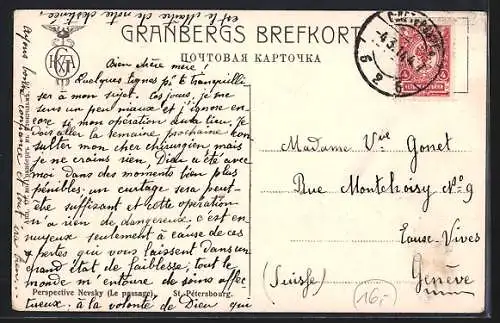 est le maître de notre destinée.
Ayons toujours confiance en tout en Lui.
GRANBERGS BREFKORT
ПОЧТОВАЯ КАРТОЧКА
Bien chère mère!
Quelques lignes pr te tranquilli
ser à mon sujet. Ces jours, je me
sens un peu mieux et j'ignore en-
core si mon opération aura lieu. Je
dois aller la semaine prochaine con
sulter mon cher chirurgien mais
je ne crains rien, Dieu a été avec
moi dans des moments bien plus
pénibles. un curtage sera peut-
être suffisant et cette opération
n'a rien de dangereux. c'est en-
nuyeux seulement à cause de ces
pertes qui vous laissent dans un
grand état de faiblesse; tout le
monde m'entoure de soins affec
tueux. à la volonté de Dieu qui
Perspective Nevsky (Le passage). St. Pétersbourg.
Madame Vve Gonet
Rue Montchoisy No 9
Eaux-Vives
(Suisse) Genève
16.-